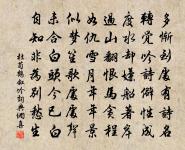 多慚到處有詩名
轉覺吟詩僻性成
度水卻嫌船著岸
過山翻恨馬貪程
如仇雪月年年景
似夢笙歌處處聲
未合白頭今已白
自知非為別愁生
杜荀鶴敘吟詞典網